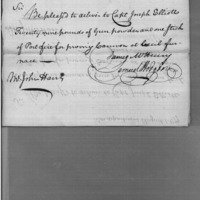 Sir
Be pleas'd to deliver to Capt Joseph Elliott
Twenty nine pounds of Gun powder and one stick
of Port fire for proving Cannon at Cecil fur-
nace —
James McHenry
Samuel
Mr John Hart